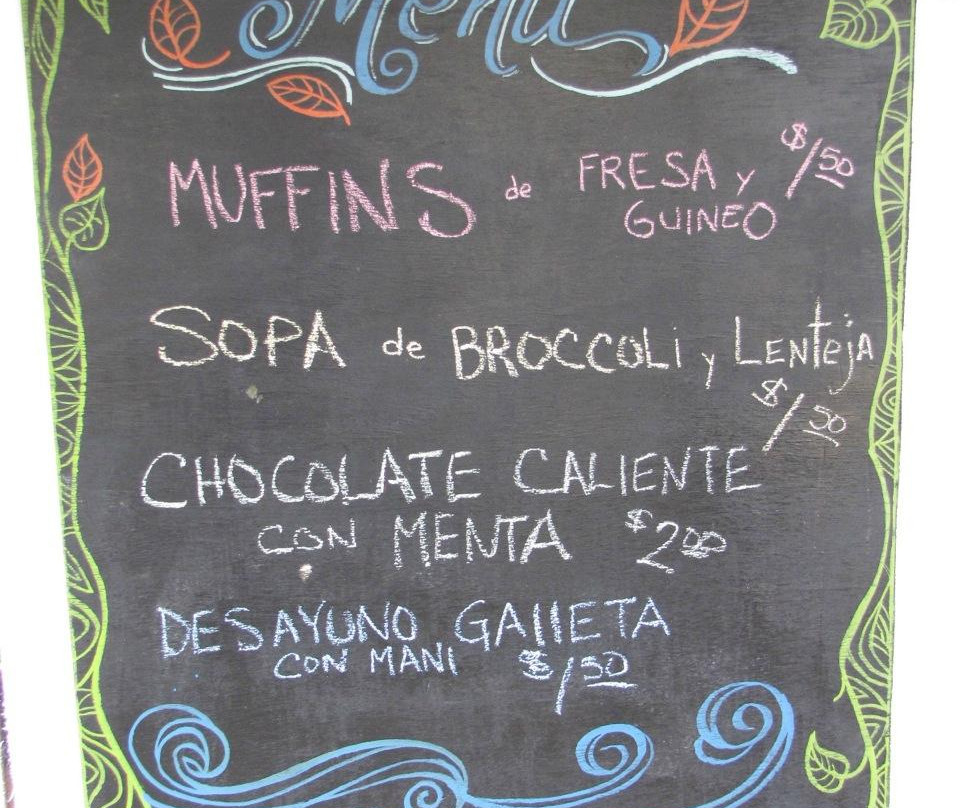 Menu
MUFFINS de FRESA y $/50
GUINEO
SOPA de BROCCOLi y LENTEJA
$/50
CHOCOLATE CALIENTE
CON MENTA $200
DESAYUNO GALLETA
CON MANI $/50